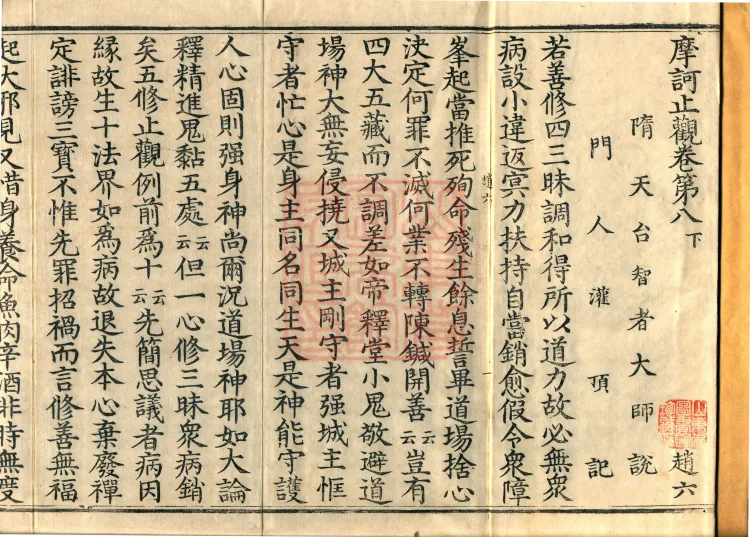 摩訶止觀卷第八下
隋天台智者大師說 趙六
門人灌頂記
若善修四三昧調和得所以道力故必無衆
病設小違返冥力扶持自當銷愈假令衆障
峯起當推死殉命殘生餘息誓畢道場捨心
決定何罪不滅何業不轉陳鍼開善云云豈有
四大五藏而不調差如帝釋堂小鬼敬避道
場神大無妄侵撓又城主剛守者强城主恇
守者忙心是身主同名同生天是神能守護
人心固則强身神尚爾況道場神耶如大論
釋精進鬼黏五處云云但一心修三昧衆病銷
矣五修止觀例前爲十云云先簡思議者病因
緣故生十法界如爲病故退失本心棄廢禪
定誹謗三寶不惟先罪招禍而言修善無福
起大邪見又惜身養命魚肉辛酒非時無度
趙六